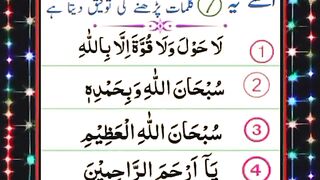 اسے یہ 7 کلمات پڑھنے کی توفیق دیتا ہے
1 لَا حَوْلَ وَلَا قُوَّةَ اِلَّا بِاللّٰهِ
2 سُبْحَانَ اللّٰهِ وَبِحَمْدِهٖ
3 سُبْحَانَ اللّٰهِ الْعَظِيْمِ
4 يَآ اَرْحَمَ الرَّاحِمِيْنَ